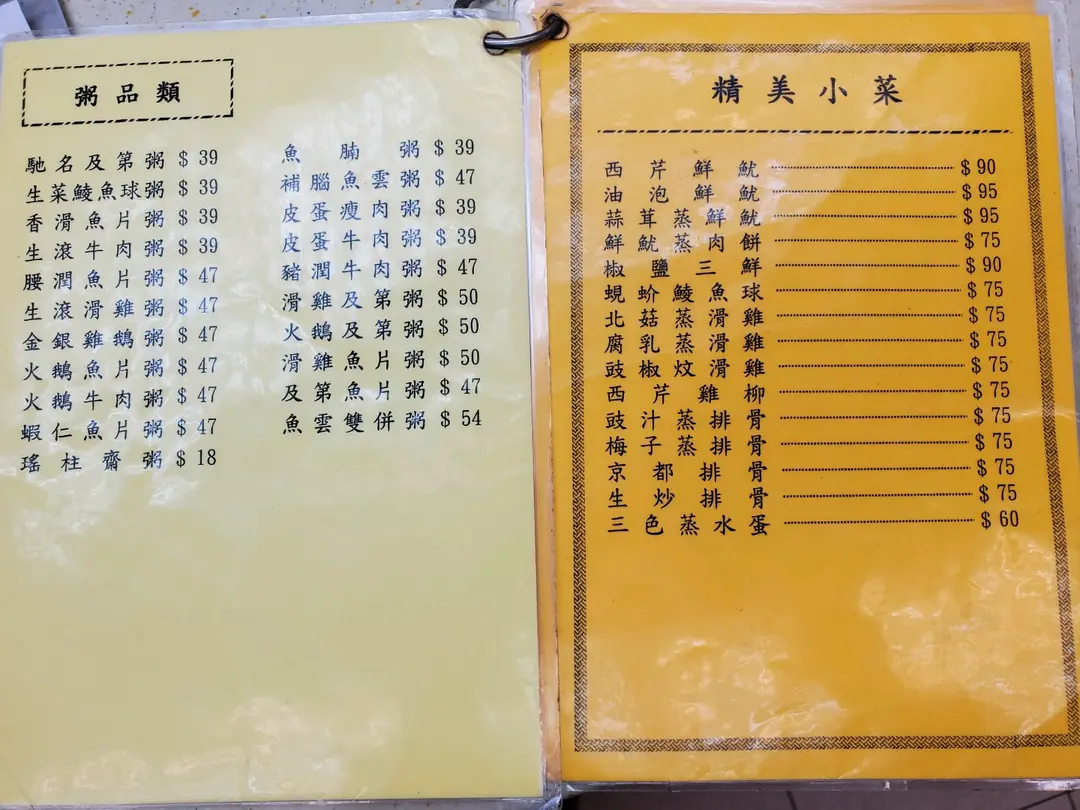 粥品類
馳名及第粥 $ 39
生菜鯪魚球粥 $ 39
香滑魚片粥 $ 39
生滾牛肉粥 $ 39
腰潤魚片粥 $ 47
生滾滑雞粥 $ 47
金銀雞鵝粥 $ 47
火鵝魚片粥 $ 47
火鵝牛肉粥 $ 47
蝦仁魚片粥 $ 47
瑤柱齋粥 $ 18
魚腩粥 $ 39
補腦魚雲粥 $ 47
皮蛋瘦肉粥 $ 39
皮蛋牛肉粥 $ 39
豬潤牛肉粥 $ 47
滑雞及第粥 $ 50
火鵝及第粥 $ 50
滑雞魚片粥 $ 50
及第魚片粥 $ 47
魚雲雙併粥 $ 54
精美小菜
西芹鮮魷 $ 90
油泡鮮魷 $ 95
蒜茸蒸鮮魷 $ 95
鮮魷蒸肉餅 $ 75
椒鹽三鮮 $ 90
蜆蚧鯪魚球 $ 75
北菇蒸滑雞 $ 75
腐乳蒸滑雞 $ 75
豉椒炆滑雞 $ 75
西芹雞柳 $ 75
豉汁蒸排骨 $ 75
梅子蒸排骨 $ 75
京都排骨 $ 75
生炒排骨 $ 75
三色蒸水蛋 $ 60